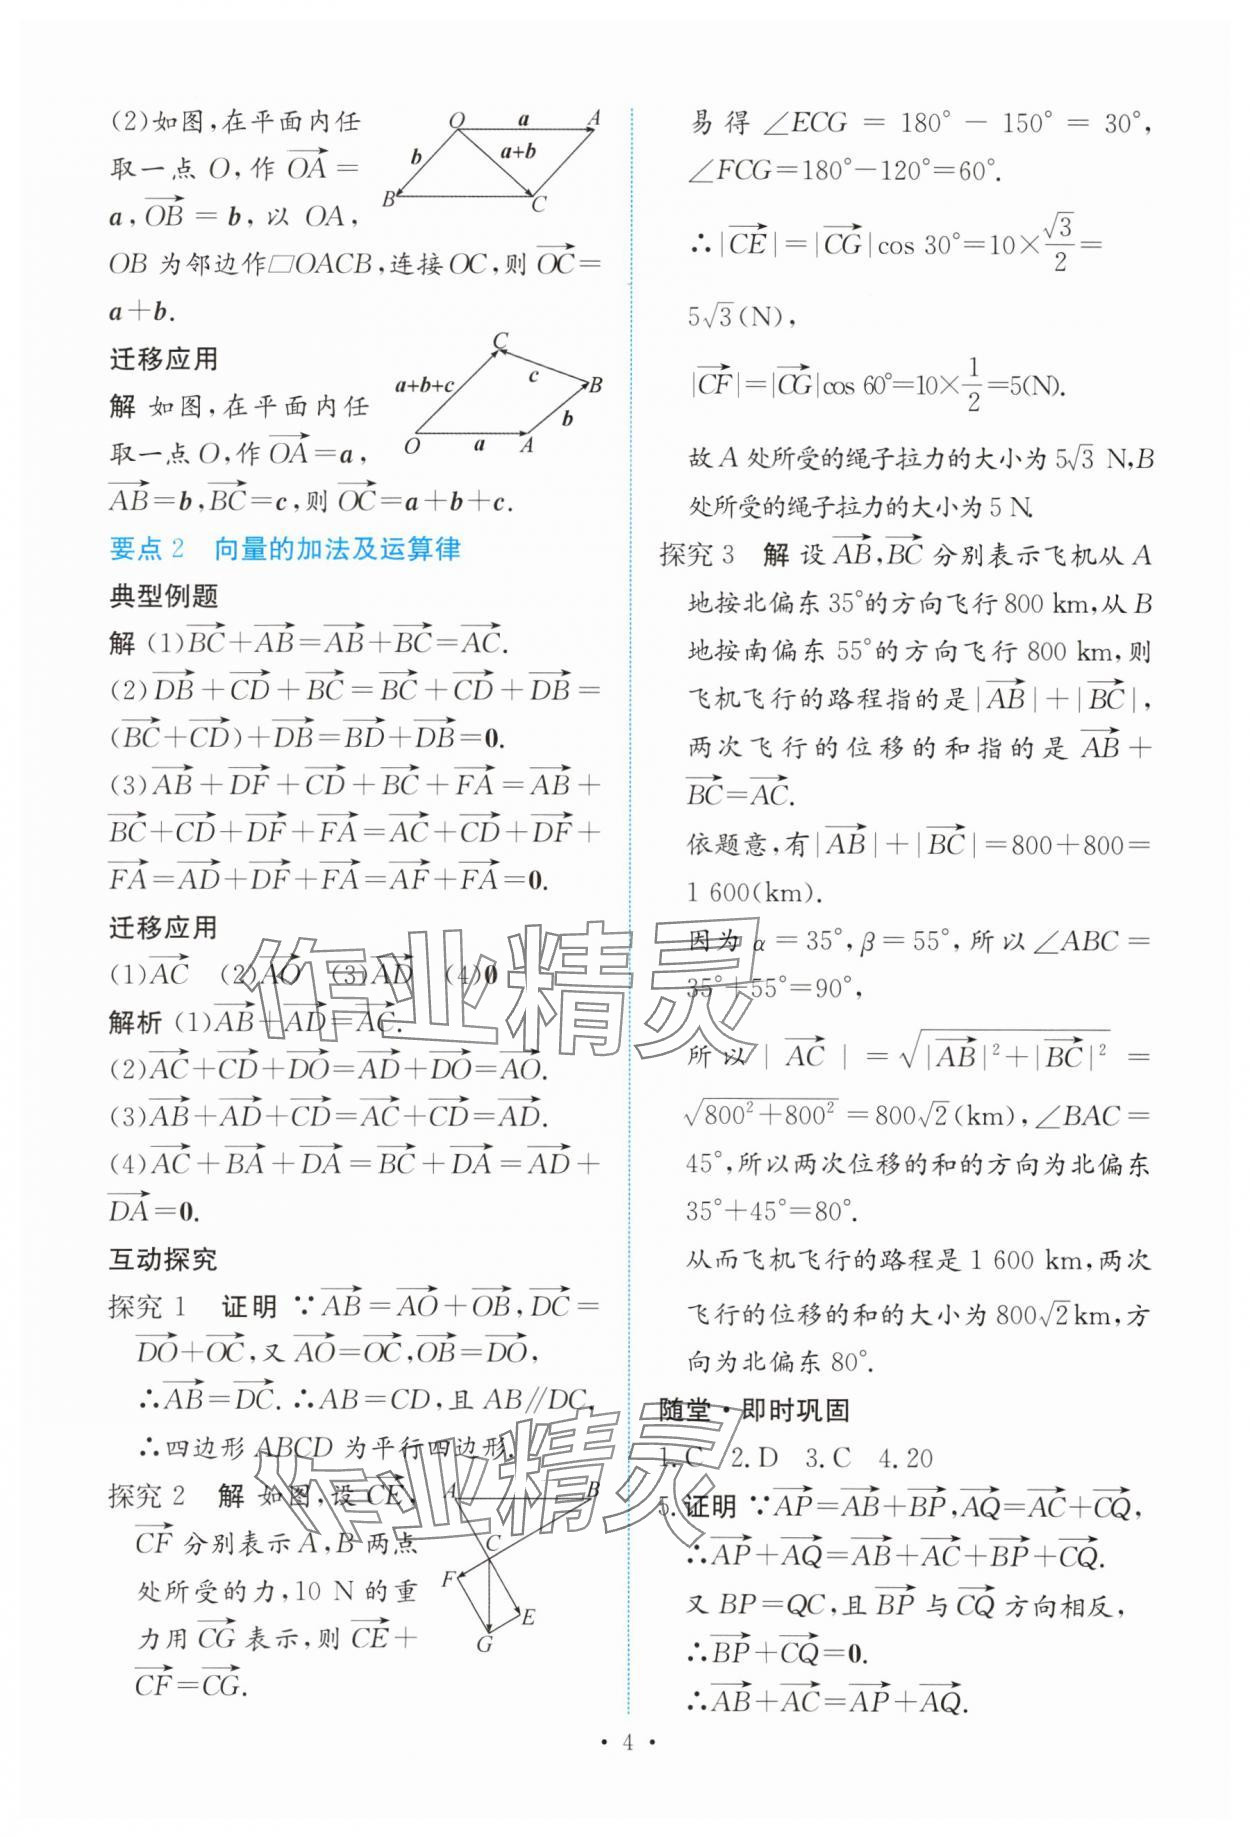 (2)如图,在平面内任
取一点 O,作 $\overrightarrow{OA}$=
a,$\overrightarrow{OB}$=b,以 OA,
OB 为邻边作□OACB,连接 OC,则 $\overrightarrow{OC}$=
a+b.
O a A
b a+b
B C
迁移应用
解 如图,在平面内任
取一点 O,作 $\overrightarrow{OA}$=a,
$\overrightarrow{AB}$=b,$\overrightarrow{BC}$=c,则 $\overrightarrow{OC}$=a+b+c.
C
a+b+c c B
b
O a A
要点 2 向量的加法及运算律
典型例题
解 (1)$\overrightarrow{BC}$+$\overrightarrow{AB}$=$\overrightarrow{AB}$+$\overrightarrow{BC}$=$\overrightarrow{AC}$.
(2)$\overrightarrow{DB}$+$\overrightarrow{CD}$+$\overrightarrow{BC}$=$\overrightarrow{BC}$+$\overrightarrow{CD}$+$\overrightarrow{DB}$=
($\overrightarrow{BC}$+$\overrightarrow{CD}$)+$\overrightarrow{DB}$=$\overrightarrow{BD}$+$\overrightarrow{DB}$=0.
(3)$\overrightarrow{AB}$+$\overrightarrow{DF}$+$\overrightarrow{CD}$+$\overrightarrow{BC}$+$\overrightarrow{FA}$=$\overrightarrow{AB}$+
$\overrightarrow{BC}$+$\overrightarrow{CD}$+$\overrightarrow{DF}$+$\overrightarrow{FA}$=$\overrightarrow{AC}$+$\overrightarrow{CD}$+$\overrightarrow{DF}$+
$\overrightarrow{FA}$=$\overrightarrow{AD}$+$\overrightarrow{DF}$+$\overrightarrow{FA}$=$\overrightarrow{AF}$+$\overrightarrow{FA}$=0.
迁移应用
(1)$\overrightarrow{AC}$ (2)$\overrightarrow{AO}$ (3)$\overrightarrow{AD}$ (4)0
解析 (1)$\overrightarrow{AB}$+$\overrightarrow{AD}$=$\overrightarrow{AC}$.
(2)$\overrightarrow{AC}$+$\overrightarrow{CD}$+$\overrightarrow{DO}$=$\overrightarrow{AD}$+$\overrightarrow{DO}$=$\overrightarrow{AO}$.
(3)$\overrightarrow{AB}$+$\overrightarrow{AD}$+$\overrightarrow{CD}$=$\overrightarrow{AC}$+$\overrightarrow{CD}$=$\overrightarrow{AD}$.
(4)$\overrightarrow{AC}$+$\overrightarrow{BA}$+$\overrightarrow{DA}$=$\overrightarrow{BC}$+$\overrightarrow{DA}$=$\overrightarrow{AD}$+
$\overrightarrow{DA}$=0.
互动探究
探究 1 证明 ∵$\overrightarrow{AB}$=$\overrightarrow{AO}$+$\overrightarrow{OB}$,$\overrightarrow{DC}$=
$\overrightarrow{DO}$+$\overrightarrow{OC}$,又 $\overrightarrow{AO}$=$\overrightarrow{OC}$,$\overrightarrow{OB}$=$\overrightarrow{DO}$,
∴$\overrightarrow{AB}$=$\overrightarrow{DC}$.∴AB=CD,且 AB∥DC,
∴四边形 ABCD 为平行四边形.
探究 2 解 如图,设 $\overrightarrow{CE}$,
$\overrightarrow{CF}$ 分别表示 A,B 两点
处所受的力,10 N 的重
力用 $\overrightarrow{CG}$ 表示,则 $\overrightarrow{CE}$+
$\overrightarrow{CF}$=$\overrightarrow{CG}$.
A B
C
F
E
G
易得 ∠ECG = 180° − 150° = 30°,
∠FCG=180°−120°=60°.
∴|$\overrightarrow{CE}$|=|$\overrightarrow{CG}$|cos 30°=10×$\frac{\sqrt{3}}{2}$=
5$\sqrt{3}$(N),
|$\overrightarrow{CF}$|=|$\overrightarrow{CG}$|cos 60°=10×$\frac{1}{2}$=5(N).
故 A 处所受的绳子拉力的大小为 5$\sqrt{3}$ N,B
处所受的绳子拉力的大小为 5 N.
探究 3 解 设 $\overrightarrow{AB}$,$\overrightarrow{BC}$ 分别表示飞机从 A
地按北偏东 35°的方向飞行 800 km,从 B
地按南偏东 55°的方向飞行 800 km,则
飞机飞行的路程指的是|$\overrightarrow{AB}$|+|$\overrightarrow{BC}$|,
两次飞行的位移的和指的是 $\overrightarrow{AB}$+
$\overrightarrow{BC}$=$\overrightarrow{AC}$.
依题意,有|$\overrightarrow{AB}$|+|$\overrightarrow{BC}$|=800+800=
1 600(km).
因为 α=35°,β=55°,所以∠ABC=
35°+55°=90°,
所以 |$\overrightarrow{AC}$| = $\sqrt{|\overrightarrow{AB}|^2+|\overrightarrow{BC}|^2}$ =
$\sqrt{800^2+800^2}$=800$\sqrt{2}$(km),∠BAC=
45°,所以两次位移的和的方向为北偏东
35°+45°=80°.
从而飞机飞行的路程是 1 600 km,两次
飞行的位移的和的大小为 800$\sqrt{2}$km,方
向为北偏东 80°.
随堂·即时巩固
1.C 2.D 3.C 4.20
5.证明 ∵$\overrightarrow{AP}$=$\overrightarrow{AB}$+$\overrightarrow{BP}$,$\overrightarrow{AQ}$=$\overrightarrow{AC}$+$\overrightarrow{CQ}$,
∴$\overrightarrow{AP}$+$\overrightarrow{AQ}$=$\overrightarrow{AB}$+$\overrightarrow{AC}$+$\overrightarrow{BP}$+$\overrightarrow{CQ}$.
又 BP=QC,且 $\overrightarrow{BP}$ 与 $\overrightarrow{CQ}$ 方向相反,
∴$\overrightarrow{BP}$+$\overrightarrow{CQ}$=0.
∴$\overrightarrow{AB}$+$\overrightarrow{AC}$=$\overrightarrow{AP}$+$\overrightarrow{AQ}$.
作业精灵
作业精灵
· 4 ·